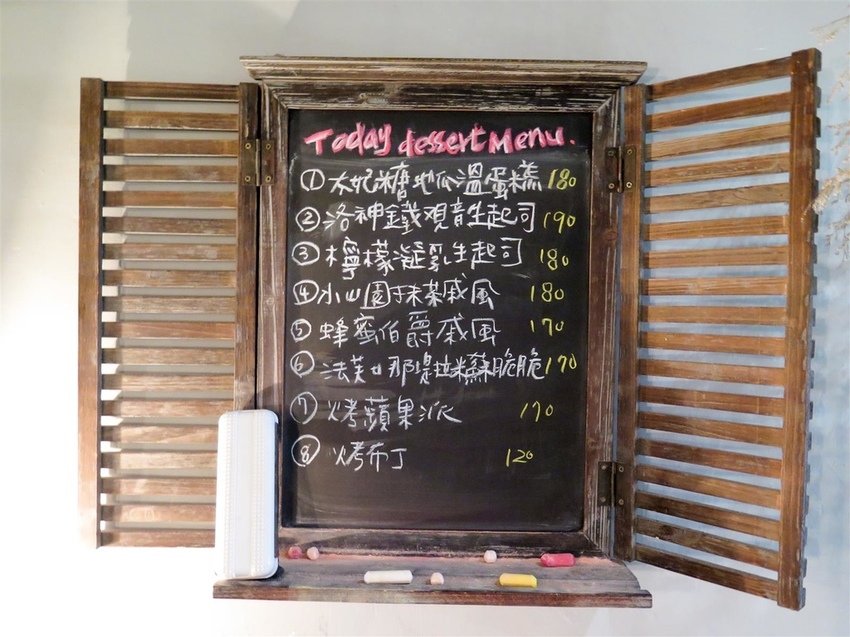 Today dessert Menu.
① 太妃糖地瓜溫蛋糕 180
② 洛神鐵觀音生起司 190
③ 檸檬凝乳生起司 180
④ 小山園抹茶戚風 180
⑤ 蜂蜜伯爵戚風 170
⑥ 法芙娜堤拉米蘇脆脆 170
⑦ 烤蘋果派 170
⑧ 烤布丁 120